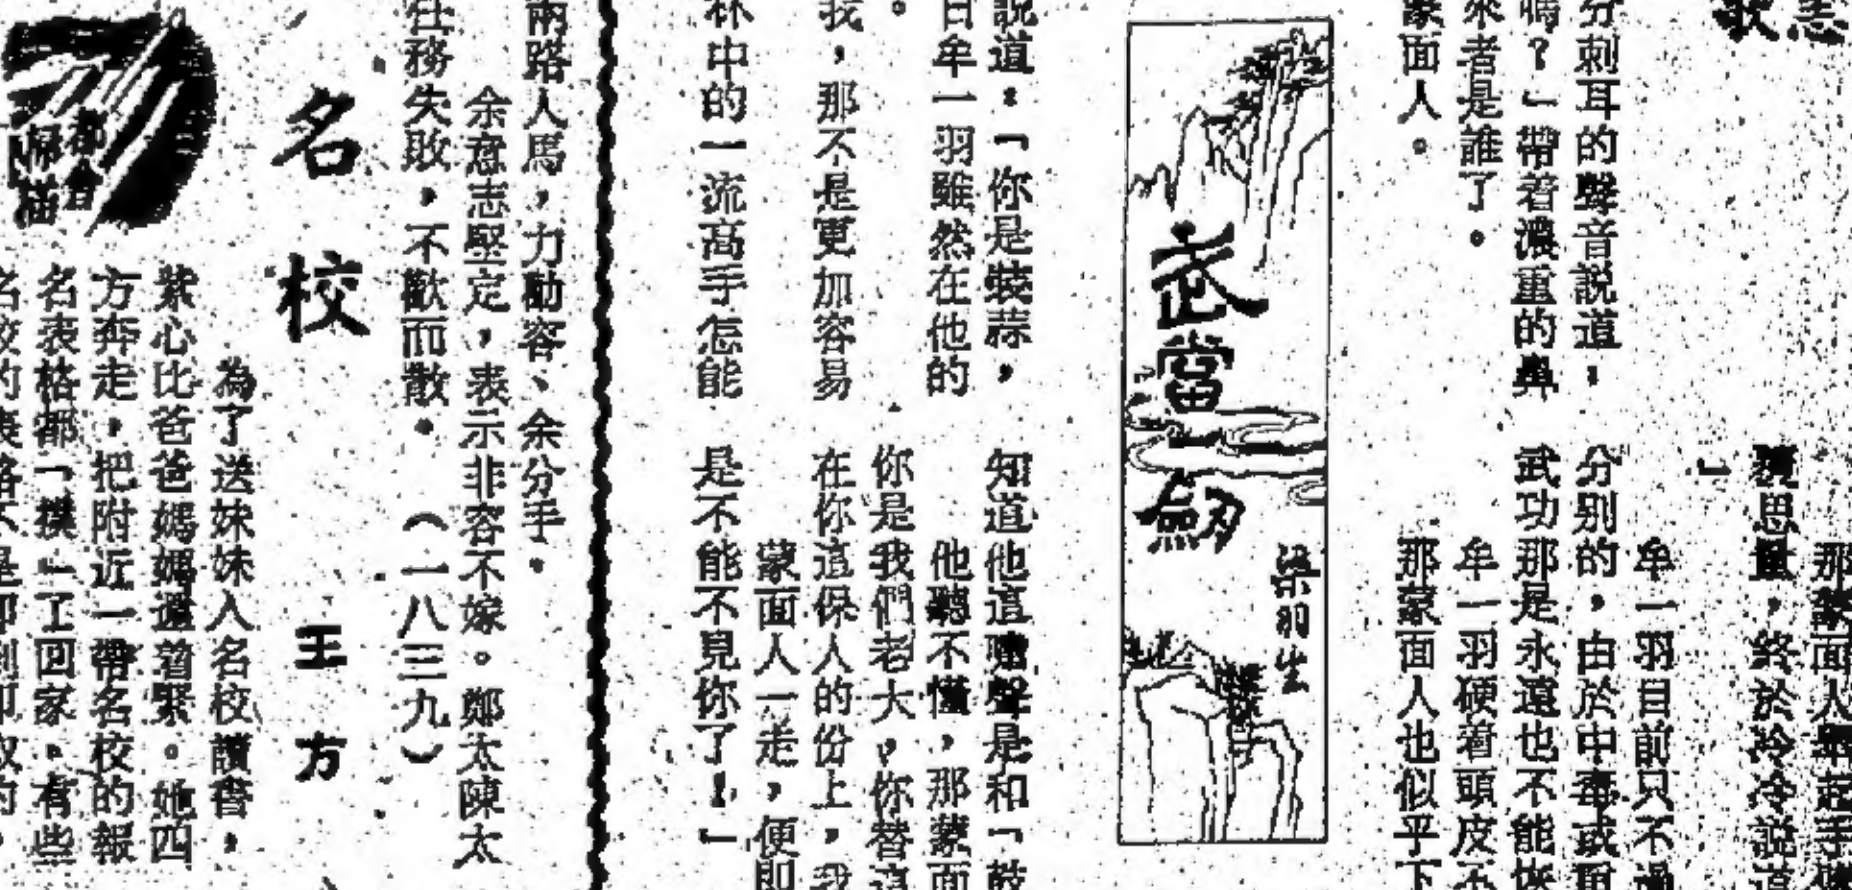 分刺耳的聲音說道：
嗎？」帶着濃重的鼻
來者是誰了。
蒙面人。
那蒙面人
思量，終於冷冷說道
」
牟一羽目前只不過
分別的，由於中毒或
武功那是永遠也不能恢
牟一羽硬着頭皮不
那蒙面人也似乎下
武當一劍
梁羽生
說道：「你是裝蒜，
日牟一羽雖然在他的
。
我，那不是更加容易
林中的一流高手怎能
知道他這嘯聲是和「鼓
他聽不懂，那蒙面
你是我們老大，你替這
在你這保人的份上，我
蒙面人一走，便即
是不能不見你了！」
兩路人馬，力勸容、余分手。
余意志堅定，表示非容不嫁。鄭太陳太
任務失敗，不歡而散。（一八三九）
名校
王方
為了送妹妹入名校讀書，
紫心比爸爸媽媽還着緊。她四
方奔走，把附近一帶名校的報
名表格都「撲」了回家。有些
名校的表格不是即到即取的，